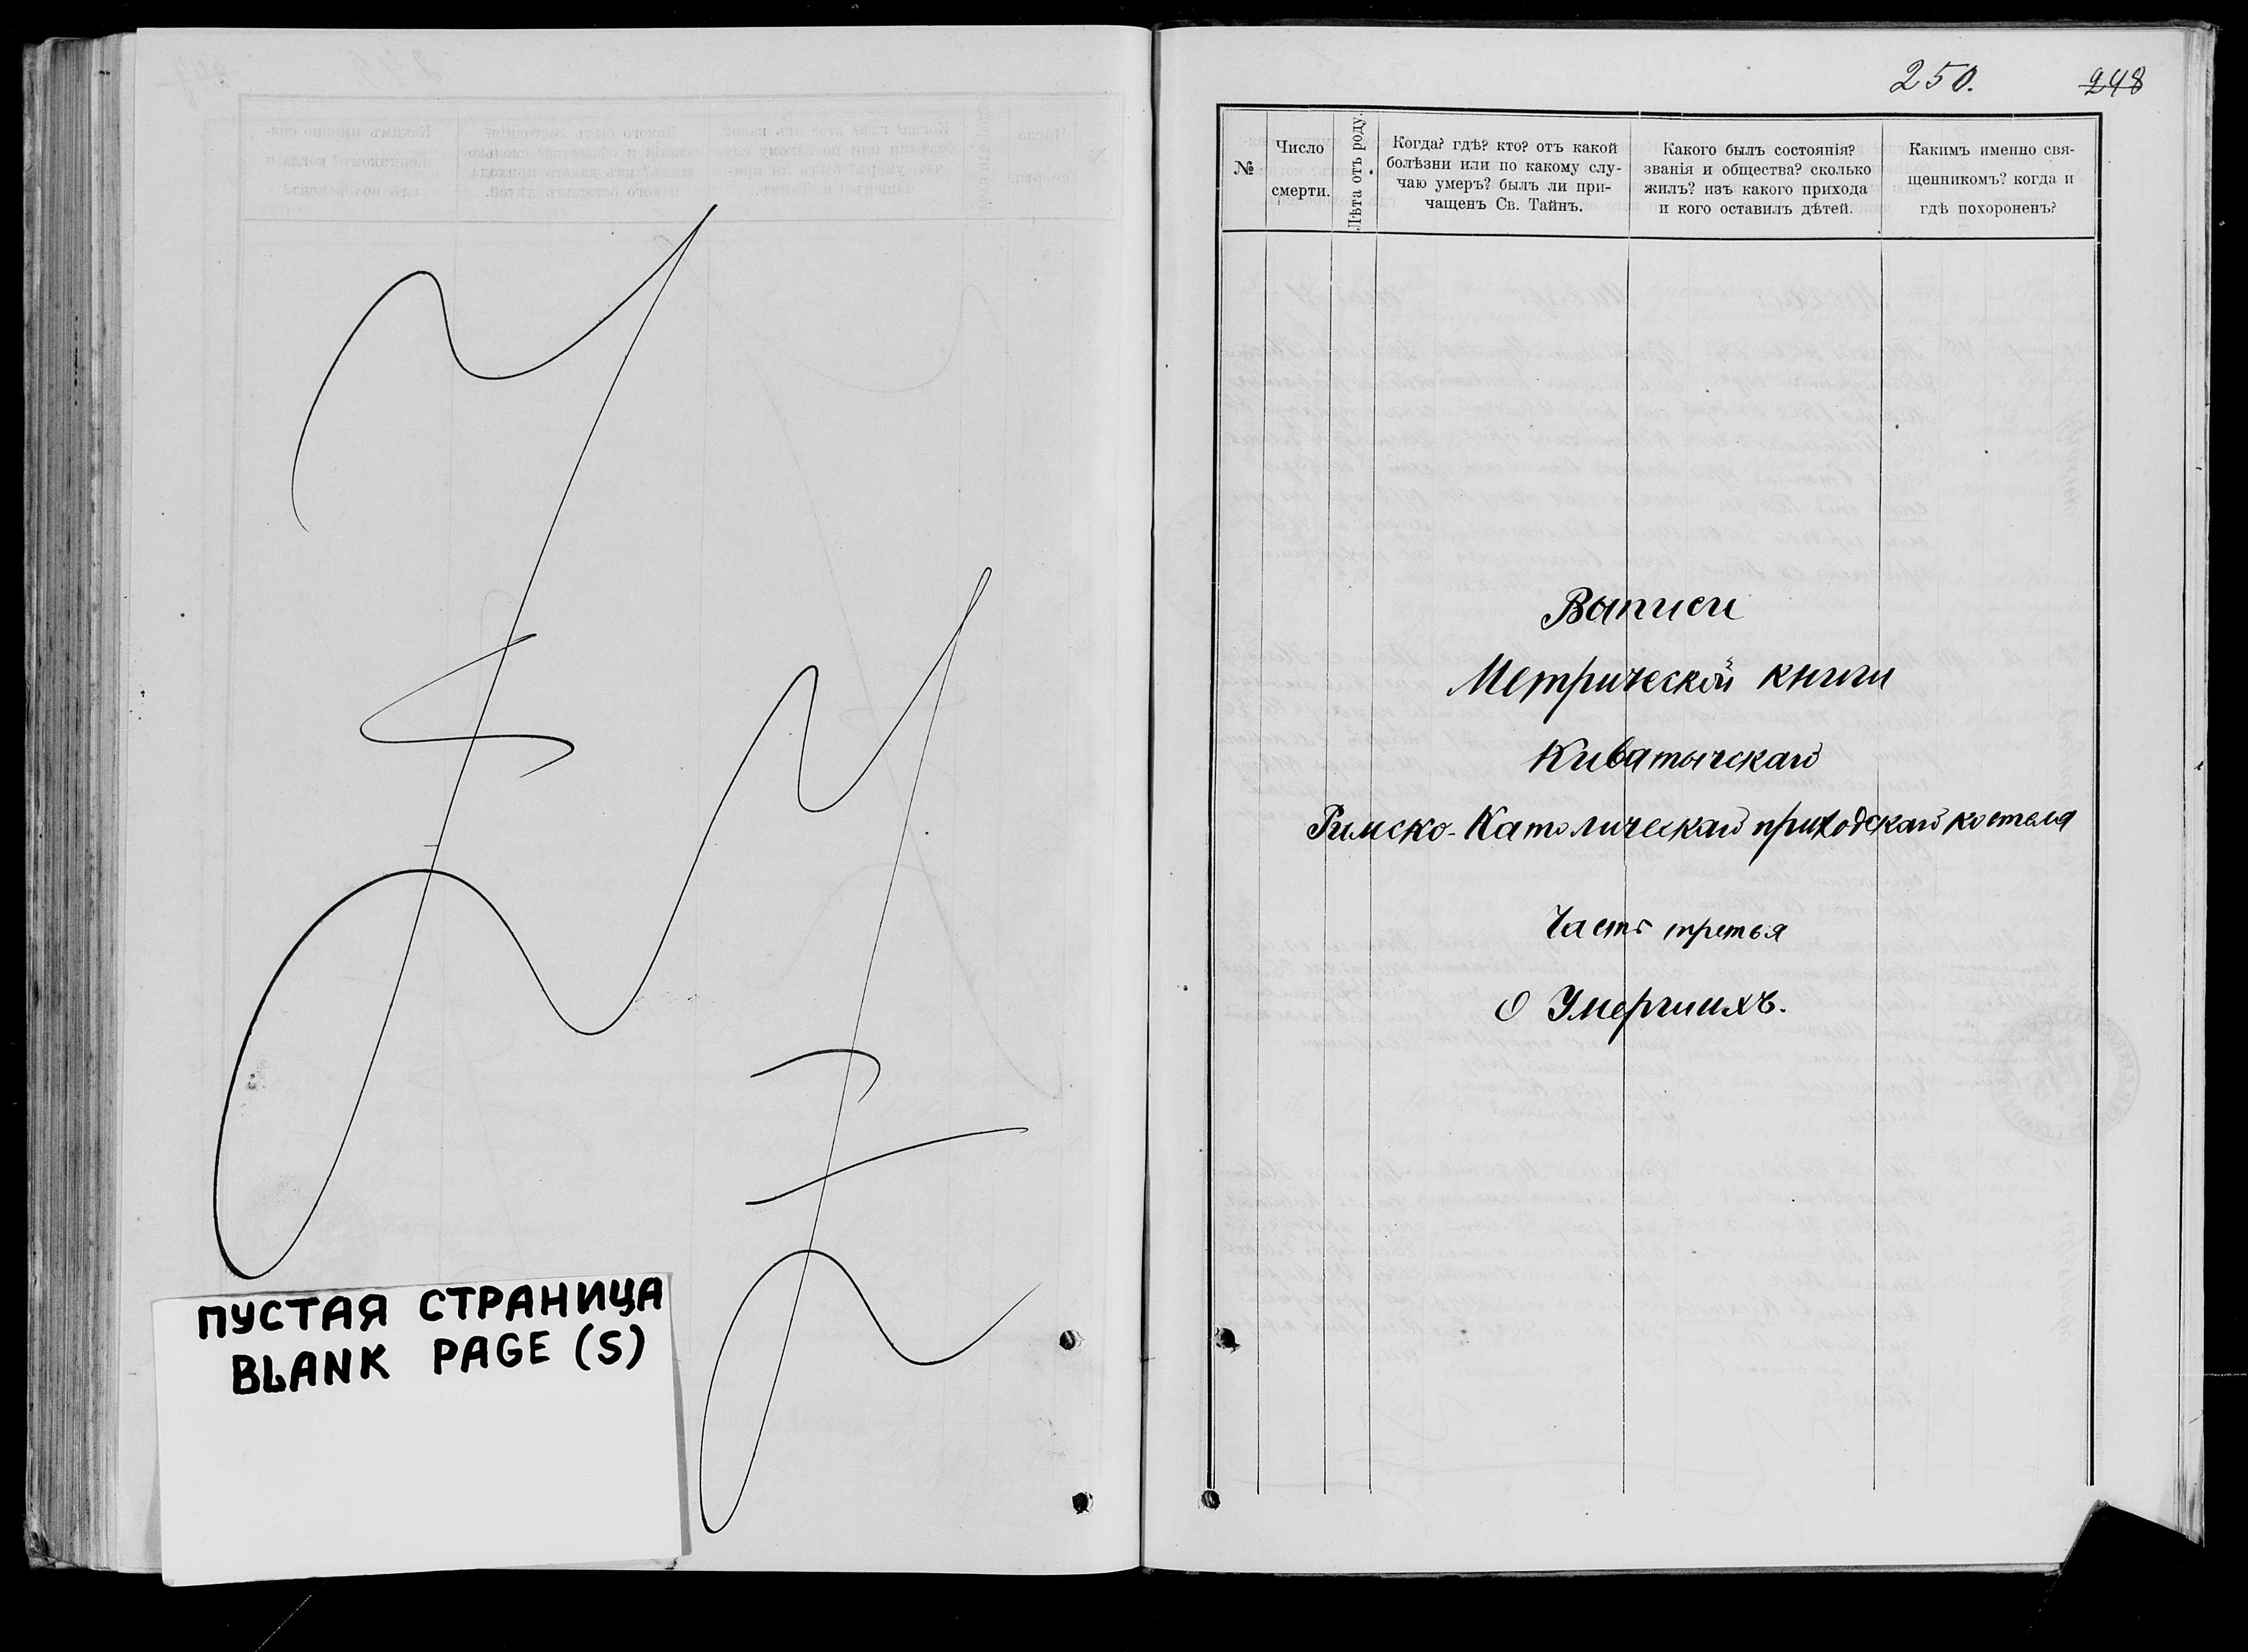 ПУСТАЯ СТРАНИЦА
BLANK PAGE (S)
250.
248
№
Число
смерти.
Лѣта отъ роду.
Когда? гдѣ? кто? отъ какой
болѣзни или по какому слу-
чаю умеръ? былъ ли при-
чащенъ Св. Тайнъ.
Какого былъ состоянія?
званія и общества? сколько
жилъ? изъ какого прихода
и кого оставилъ дѣтей.
Какимъ именно свя-
щенникомъ? когда и
гдѣ похороненъ?
Выписи
Метрической книги
Киватыческаго
Римско-Католическаго приходскаго костела
Часть третья
О Умершихъ.